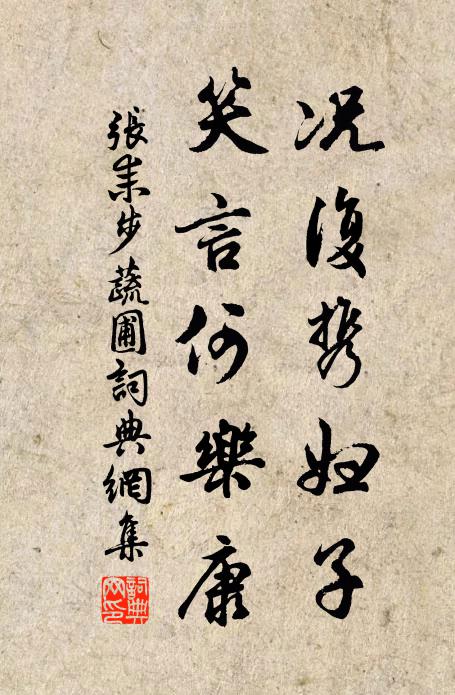 况復携婦子
笑言何樂康
張耒步蔬圃詞典網集
詞典
网印